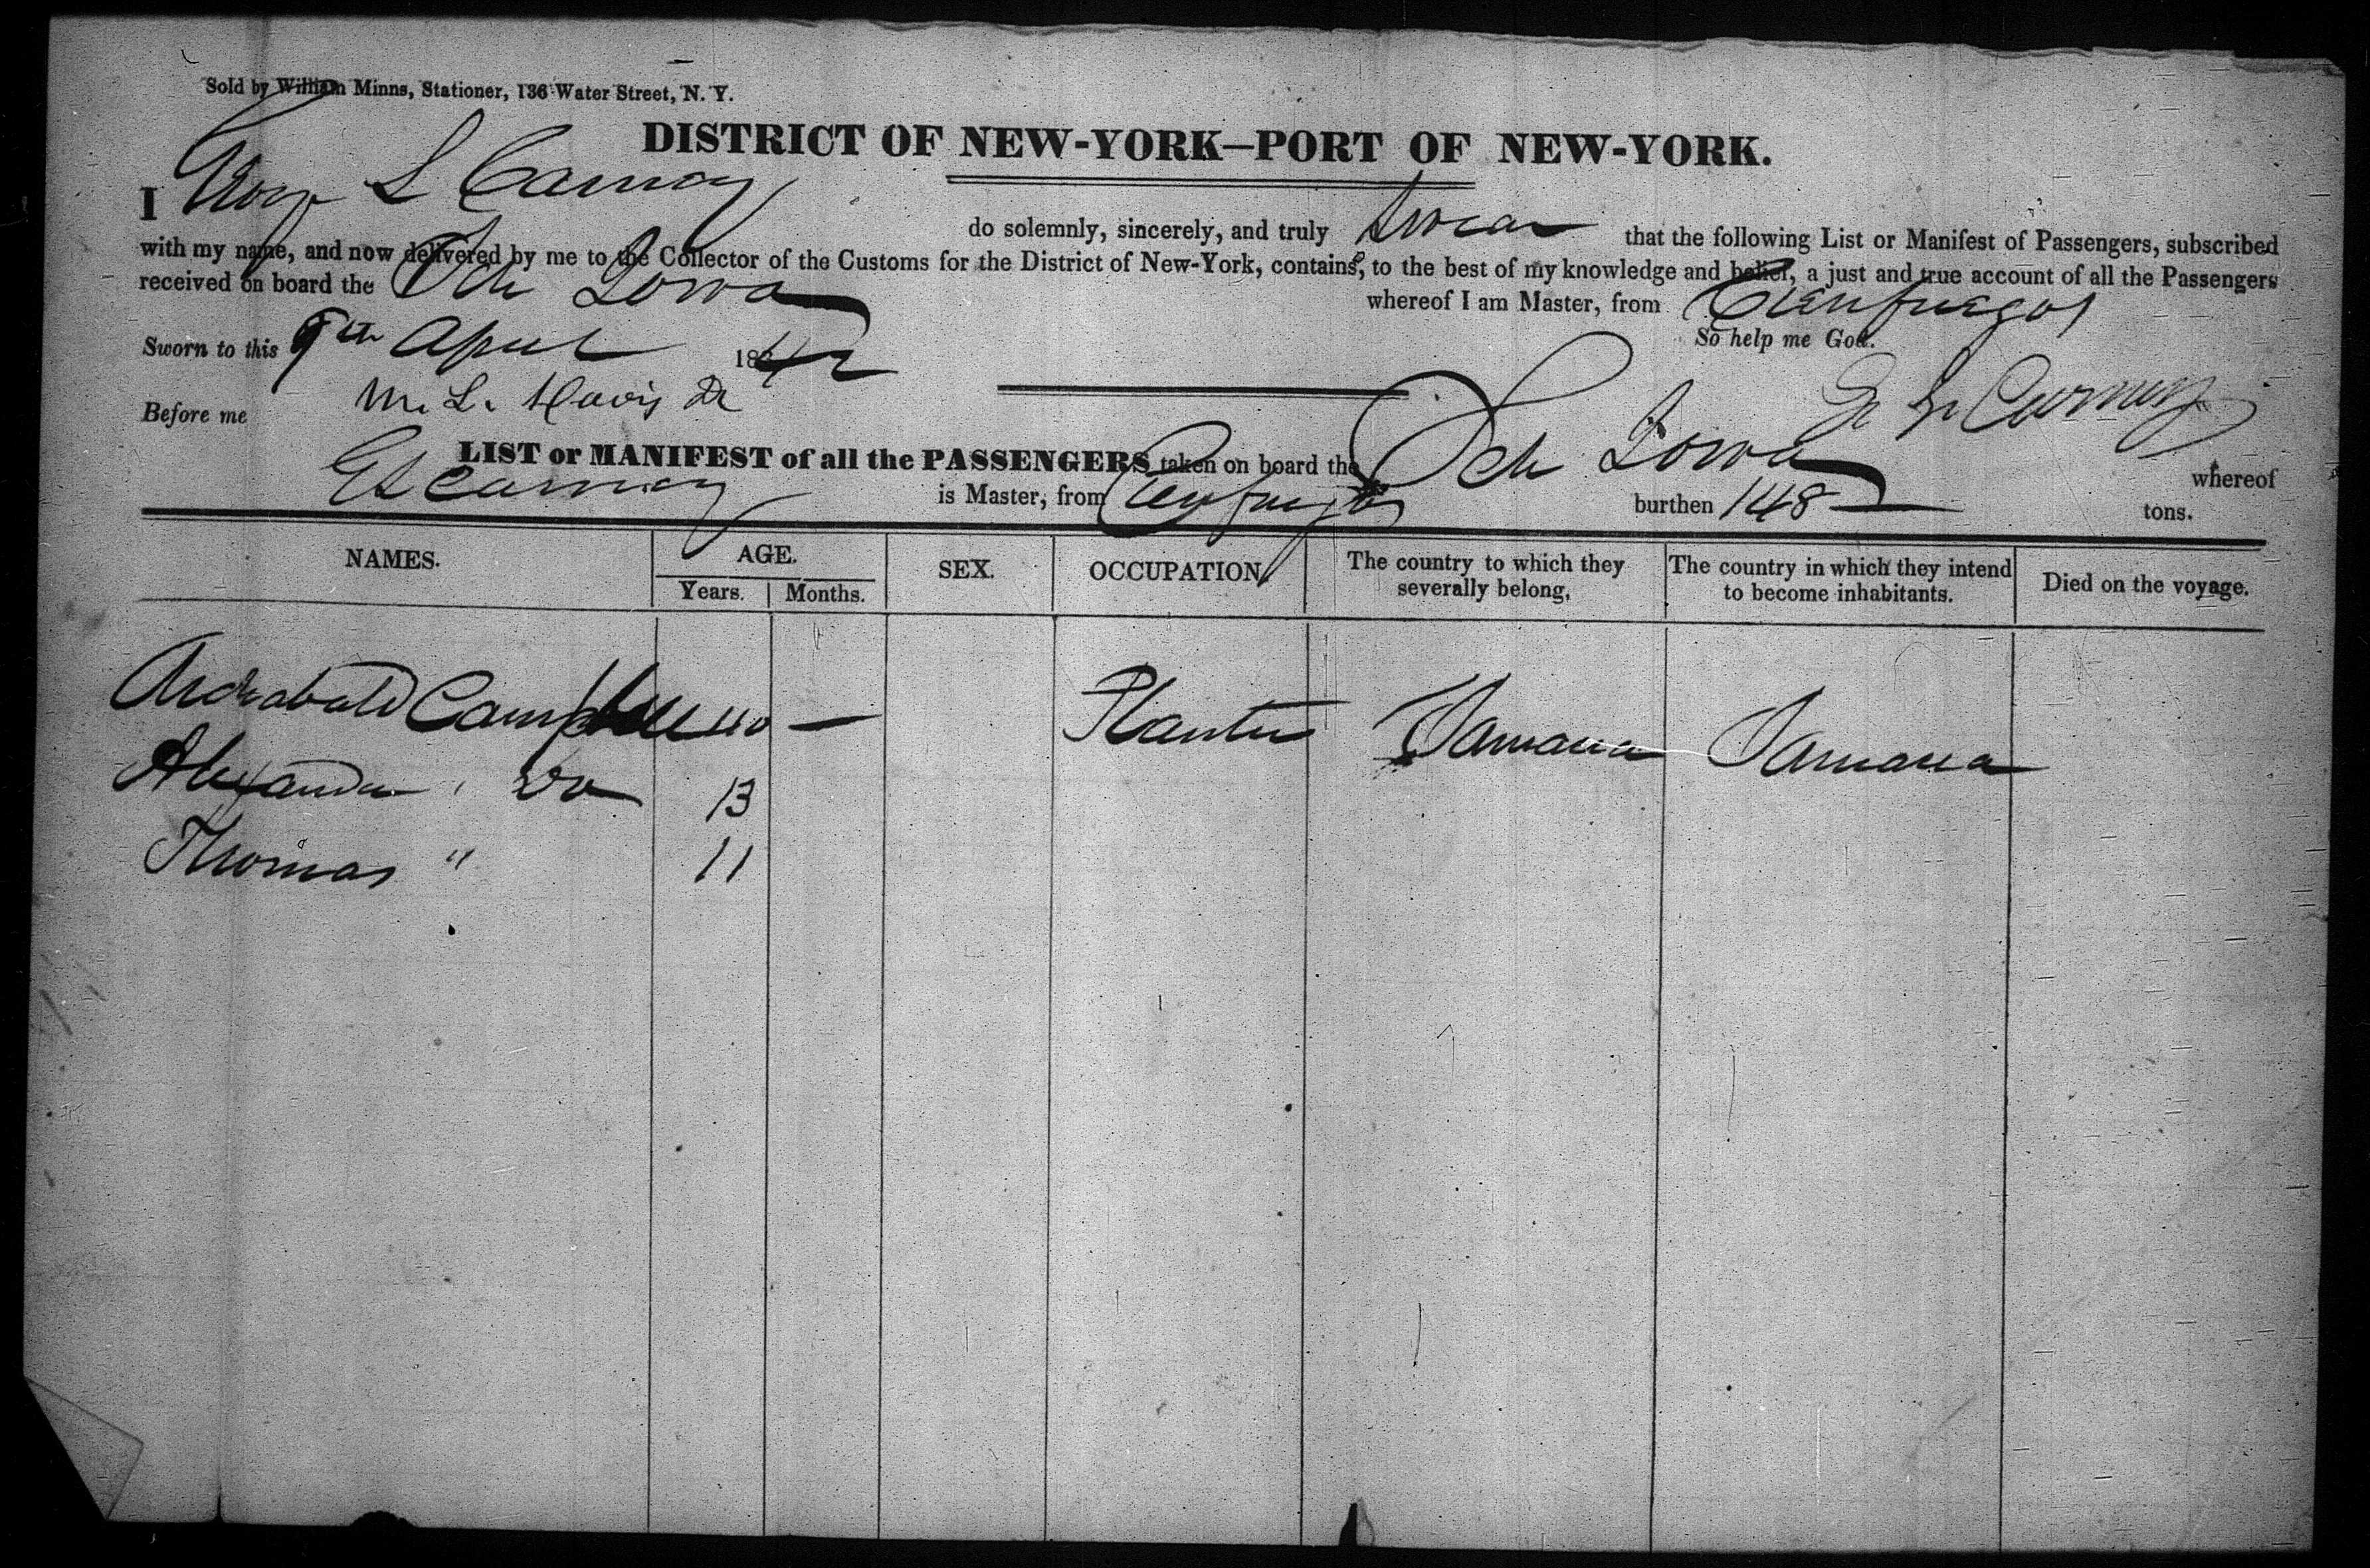 Sold by William Minns, Stationer, 136 Water Street, N. Y.
DISTRICT OF NEW-YORK—PORT OF NEW-YORK.
I Geo L Carney do solemnly, sincerely, and truly Swear that the following List or Manifest of Passengers, subscribed
with my name, and now delivered by me to the Collector of the Customs for the District of New-York, contains, to the best of my knowledge and belief, a just and true account of all the Passengers
received on board the Sch Iowa whereof I am Master, from Cienfuegos
So help me God.
Sworn to this 9th April 1842
Before me M. L. Davis
G L Carney
LIST or MANIFEST of all the PASSENGERS taken on board the Sch Iowa whereof
G L Carney is Master, from Cienfuegos burthen 148 tons.
NAMES. AGE. Years. Months. SEX. OCCUPATION. The country to which they severally belong. The country in which they intend to become inhabitants. Died on the voyage.
Archabald Campbell 40 — Planter Jamaica Jamaica
Alexander " Do 13
Thomas " 11